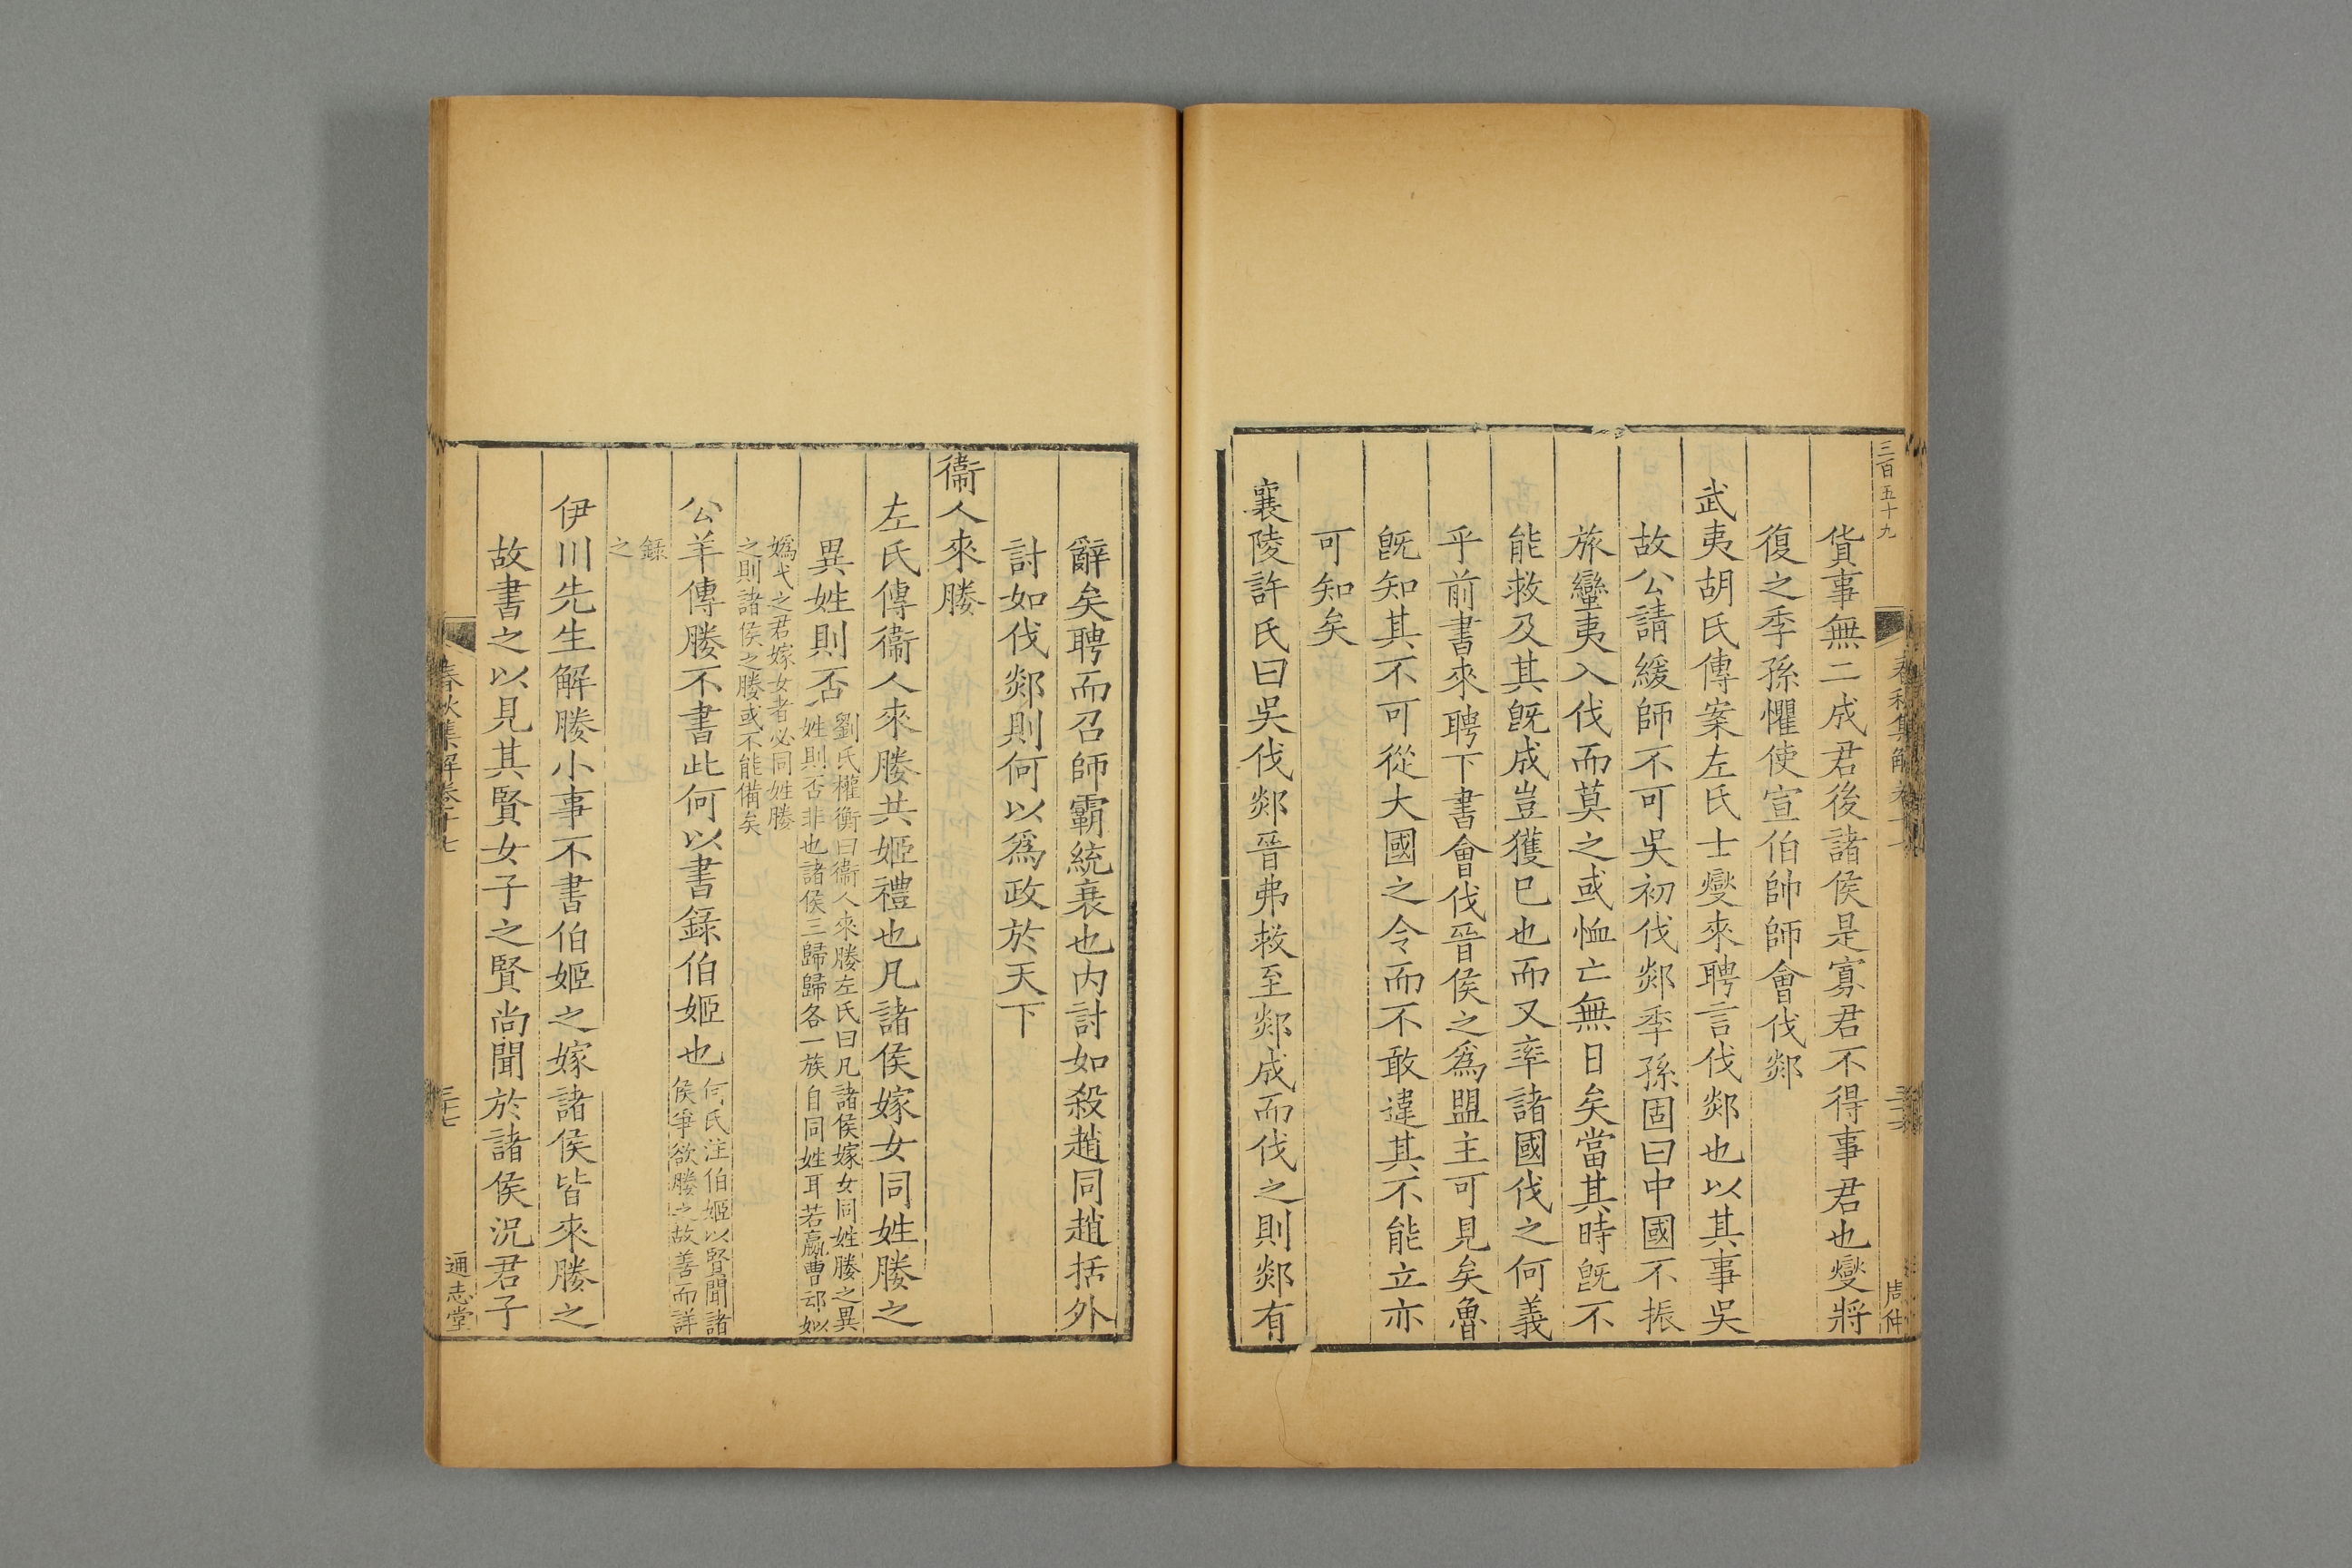 三百五十九
貨事無二成君後諸侯是寡君不得事君也燮將
復之季孫懼使宣伯帥師會伐郯
武夷胡氏傳案左氏士燮來聘言伐郯也以其事吳
故公請緩師不可吳初伐郯季孫固曰中國不振
旅蠻夷入伐而莫之或恤亡無日矣當其時旣不
能救及其旣成豈獲已也而又率諸國伐之何義
乎前書來聘下書會伐晉侯之爲盟主可見矣魯
旣知其不可從大國之令而不敢違其不能立亦
可知矣
襄陵許氏曰吳伐郯晉弗救至郯成而伐之則郯有
辭矣聘而召師霸統衰也内討如殺趙同趙括外
討如伐郯則何以爲政於天下
衞人來媵
左氏傳衞人來媵共姬禮也凡諸侯嫁女同姓媵之
異姓則否
劉氏權衡曰衞人來媵左氏曰凡諸侯嫁女同姓媵之異
姓則否非也諸侯三歸歸各一族自同姓耳若嬴曹邧姒
嬀弋之君嫁女者必同姓媵
之則諸侯之媵或不能備矣
公羊傳媵不書此何以書錄伯姬也
何氏注伯姬以賢聞諸
侯爭欲媵之故善而詳
錄
之
伊川先生解媵小事不書伯姬之嫁諸侯皆來媵之
故書之以見其賢女子之賢尚聞於諸侯況君子
春秋集解卷十七
通志堂